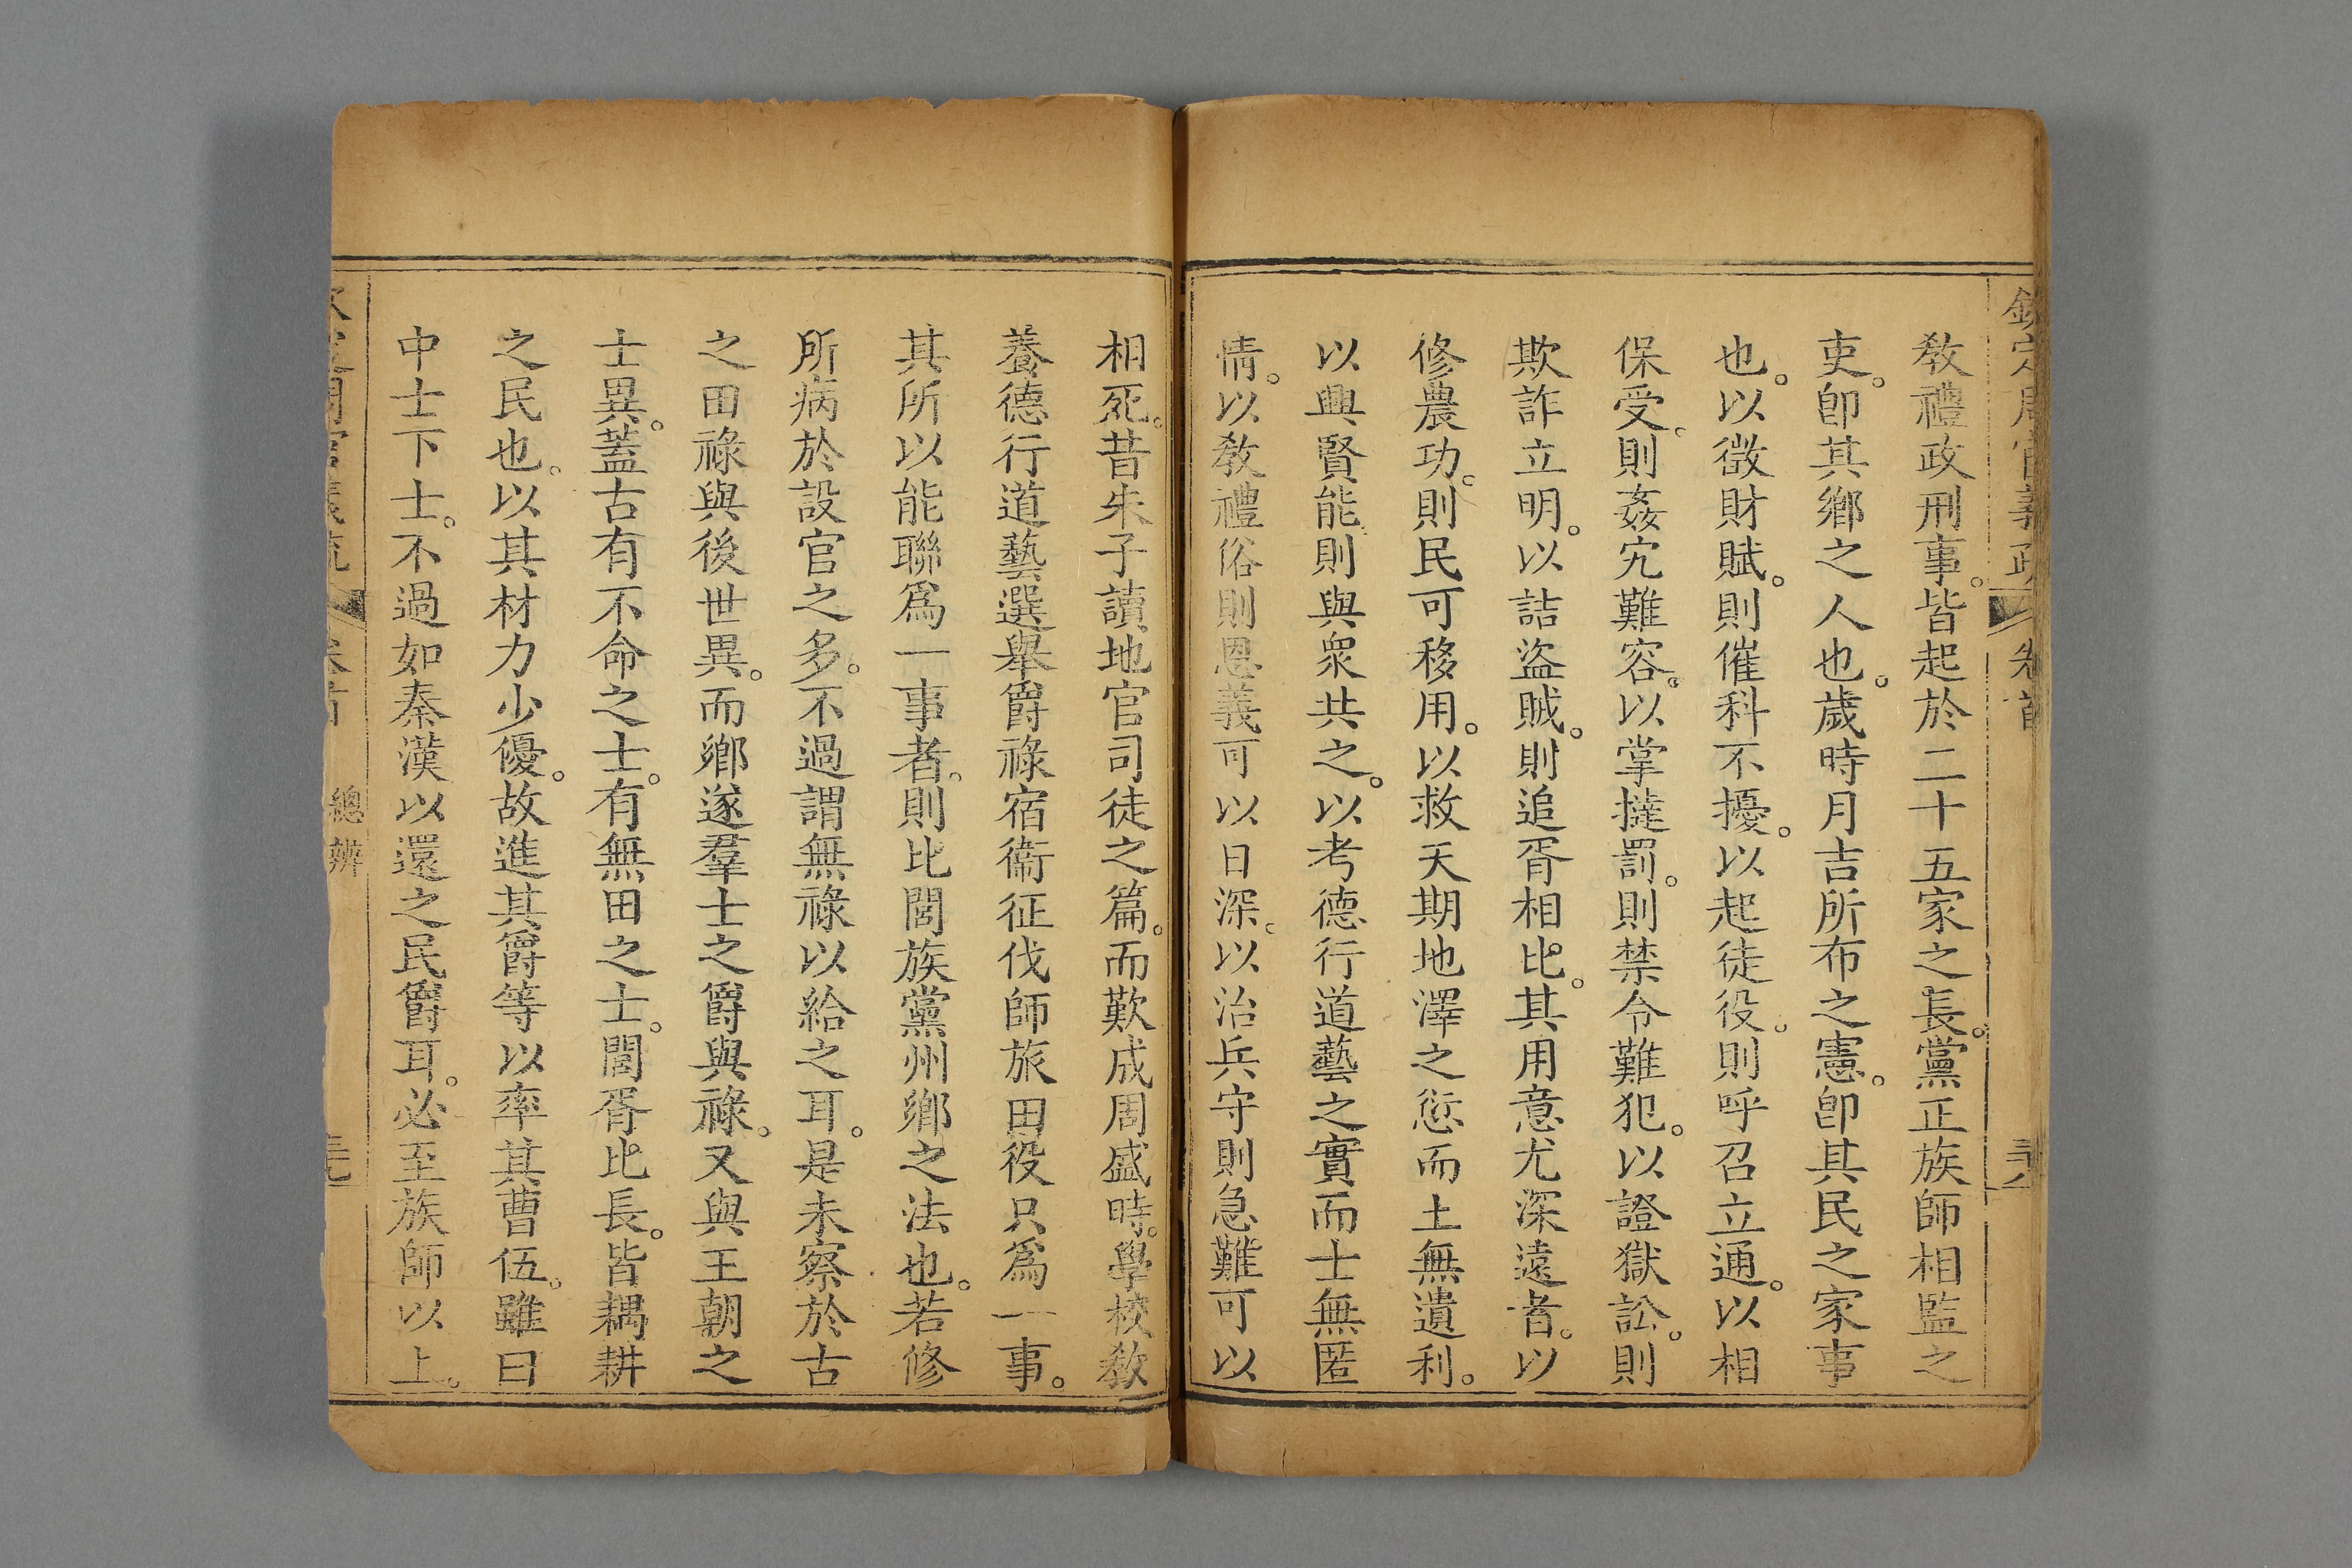 敎禮政刑事。皆起於二十五家之長。黨正族師相監之
吏。卽其鄉之人也。歲時月吉所布之憲。卽其民之家事
也。以徵財賦。則催科不擾。以起徒役。則呼召立通。以相
保受。則姦宄難容。以掌撻罰。則禁令難犯。以證獄訟。則
欺詐立明。以詰盜賊。則追胥相比。其用意尤深遠者。以
修農功。則民可移用。以救天期地澤之愆而土無遺利。
以興賢能則與衆共之。以考德行道藝之實而士無匿
情。以敎禮俗則恩義可以日深。以治兵守則急難可以
相死。昔朱子讀地官司徒之篇。而歎成周盛時。學校敎
養德行道藝選舉爵祿宿衞征伐師旅田役只爲一事。
其所以能聯爲一事者。則比閭族黨州鄉之法也。若修
所病於設官之多。不過謂無祿以給之耳。是未察於古
之田祿與後世異。而鄉遂羣士之爵與祿。又與王朝之
士異。蓋古有不命之士。有無田之士。閭胥比長。皆耦耕
之民也。以其材力少優。故進其爵等以率其曹伍。雖曰
中士下士。不過如秦漢以還之民爵耳。必至族師以上。
總辨